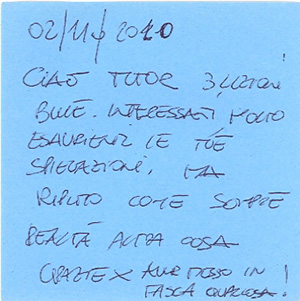 02/11/2010
CIAO TUTOR 3 LEZIONI
BELLE. INTERESSANTI MOLTO
ESAURIENTI LE TUE
SPIEGAZIONI, MA
RIPETO COME SEMPRE
REALTÀ ALTRA COSA
GRAZIE X AVER MESSO IN
TASCA QUALCOSA!